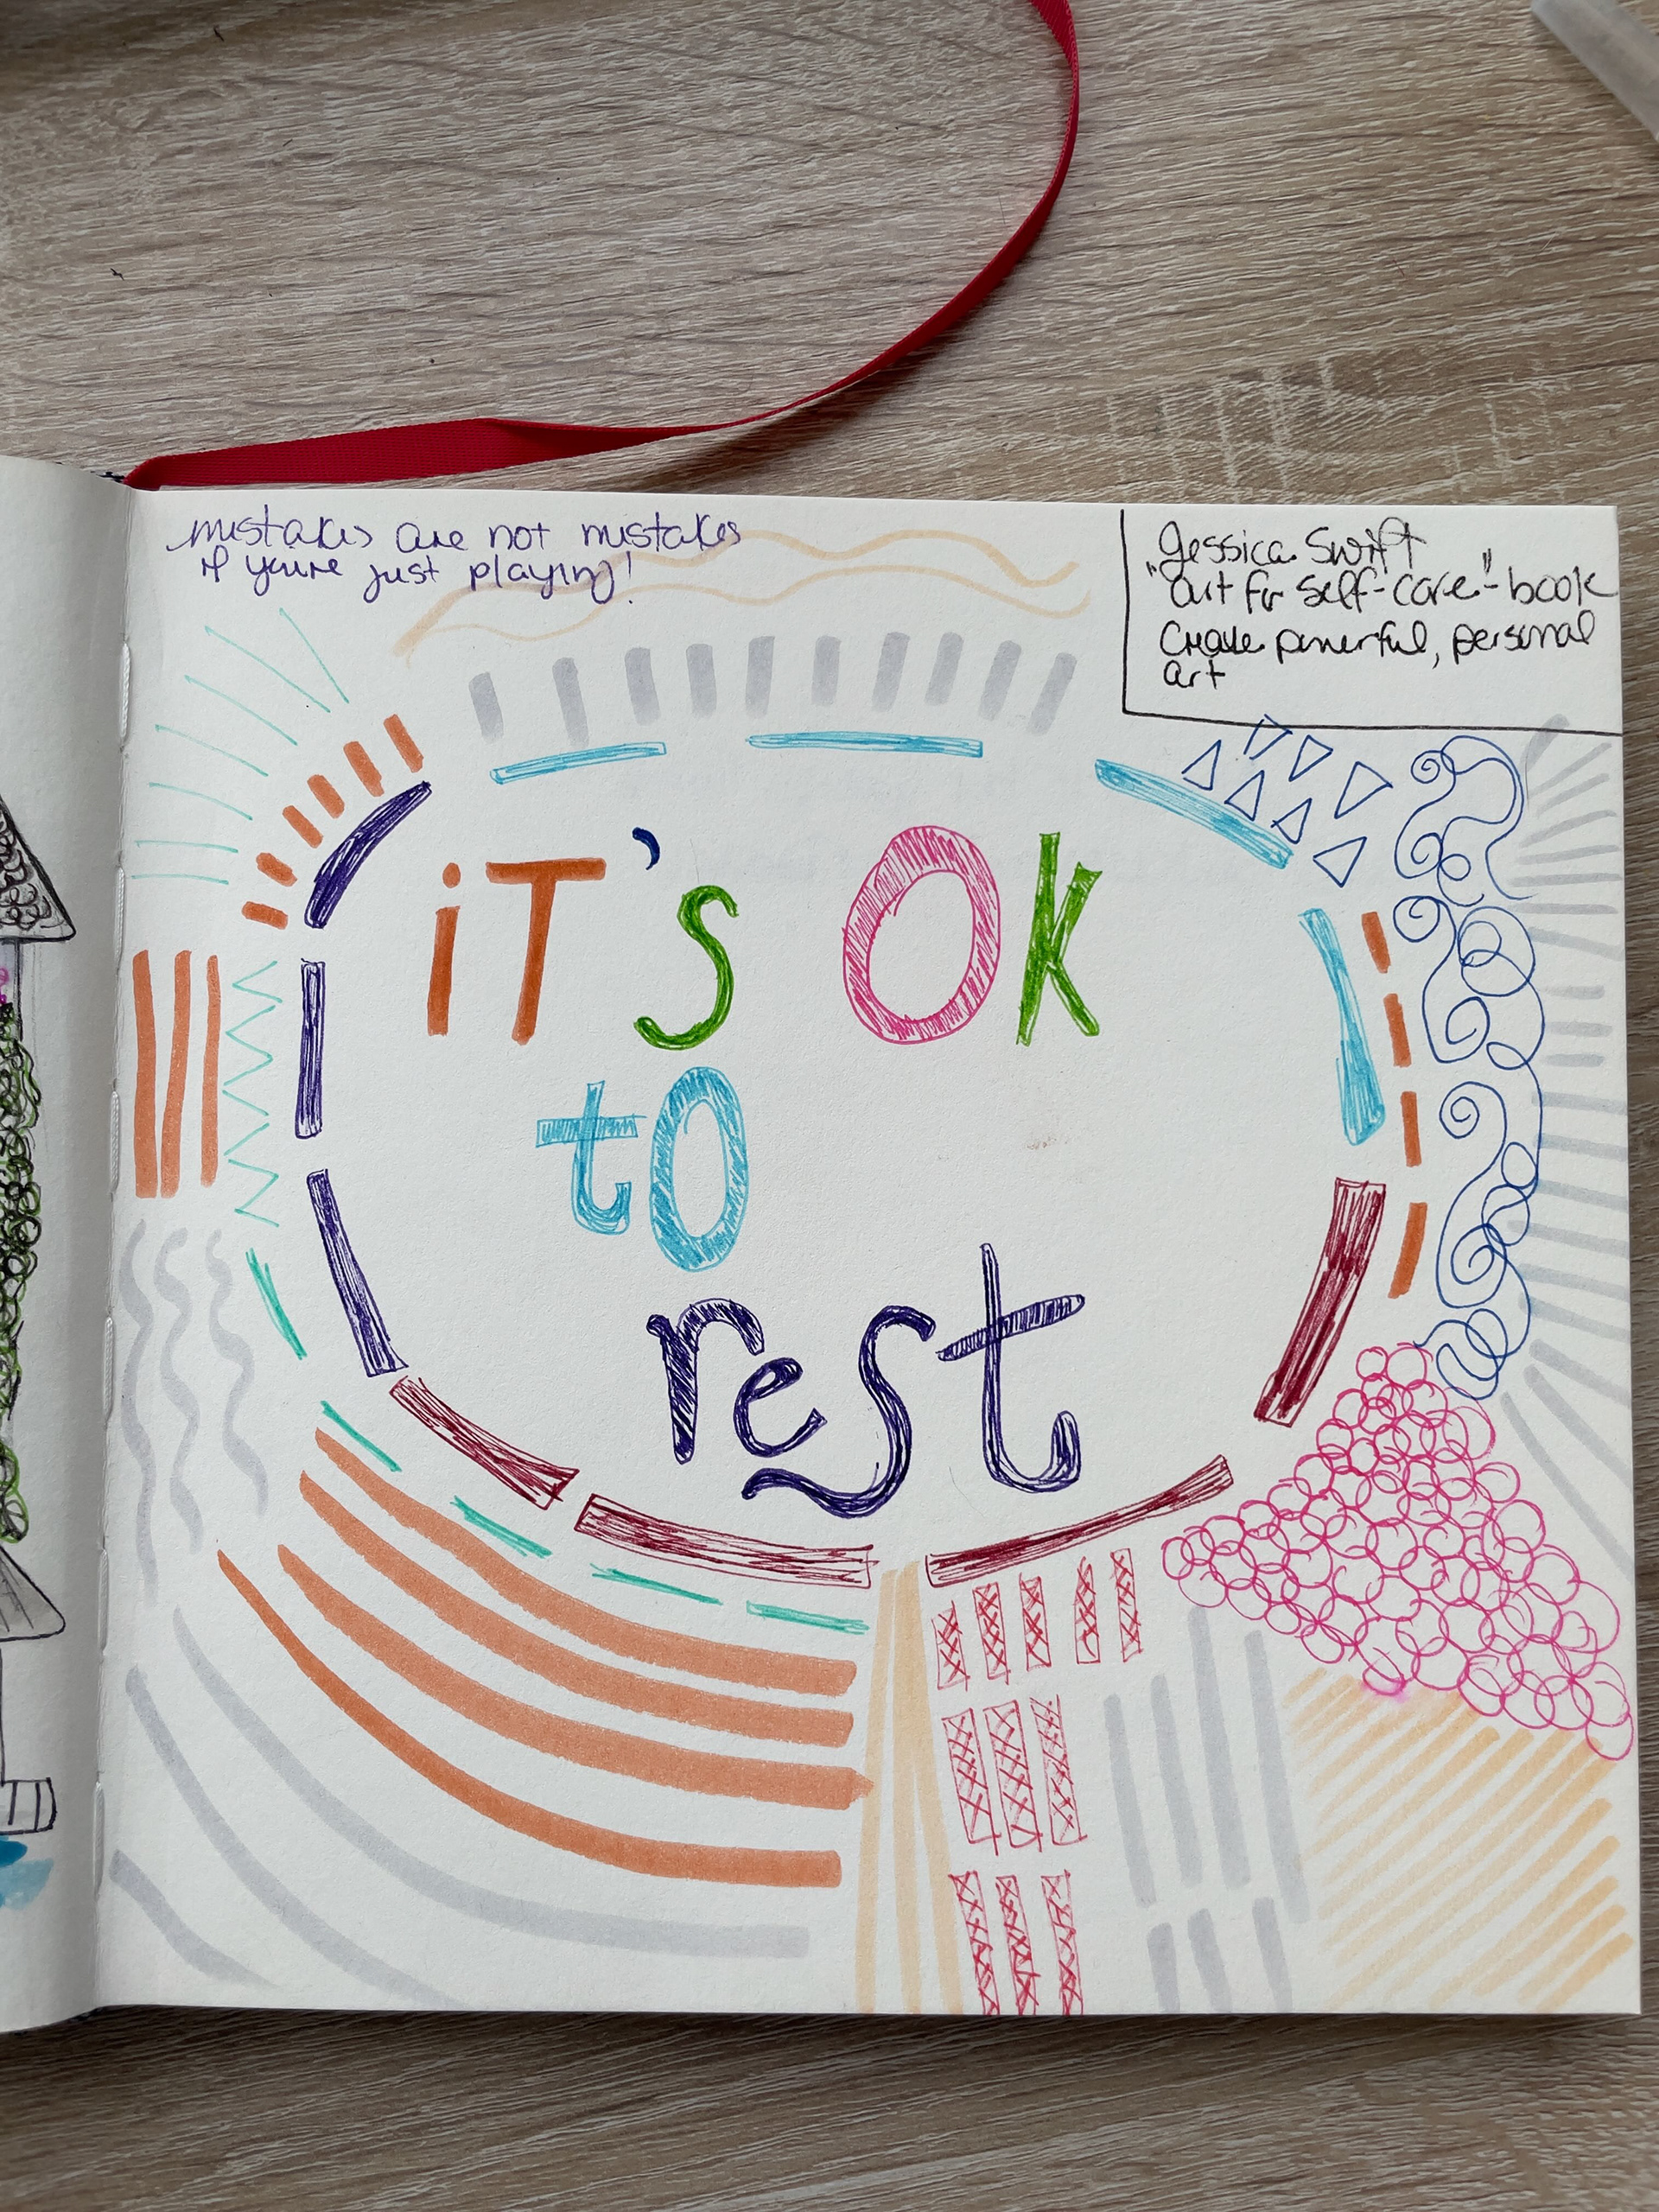 mistakes are not mistakes
if you're just playing!
Jessica Swift
"art for self-care"-book
Create powerful, personal
art
iT's OK
to
rest